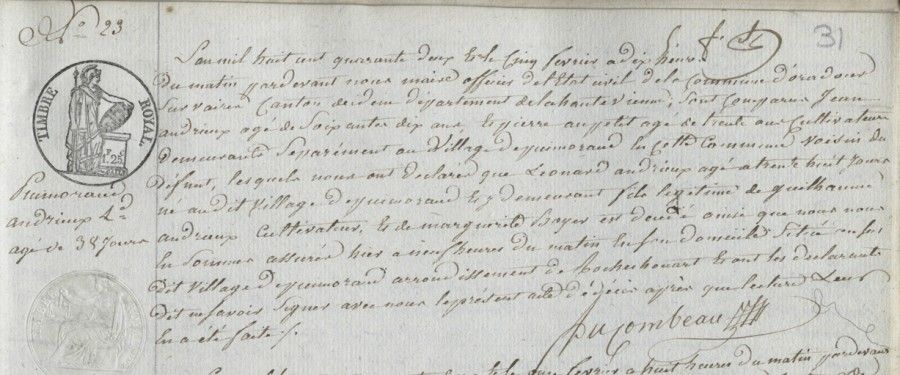 No 23
31
L'an mil huit cent quarante deux et le cinq fevrier a dix heures
du matin pardevant nous maire officier de l'Etat civil de la Commune d'oradour
Sur vaires Canton de idem département de la haute vienne, Sont Comparus Jean
andrieux agé de Soixante dix ans et pierre aupetit agé de trente ans Cultivateurs
demeurants Separément au Village de puimoraud en Cette Commune voisins du
défunt, lesquels nous ont declaré que Léonard andrieux agé de trente huit Jours
né au dit Village de puimoraud et y demeurant fils legitime de guilhaume
andrieux Cultivateur, et de marguerite Boyer est decedé ainsi que nous nous
En Sommes assurés hier a neuf heures du matin En son domicile Situé au Sus
dit Village de puimoraud arrondissement de Rochechouart Et ont les declarants
dit ne savoir Signer avec nous le présent acte de décés apres que lecture Leur
En a été faite /.
puyjombeau
TIMBRE ROYAL
1.25
Puimoraud
andrieux Ld
agé de 38 Jours
fevrier a huit heures du matin pardevant